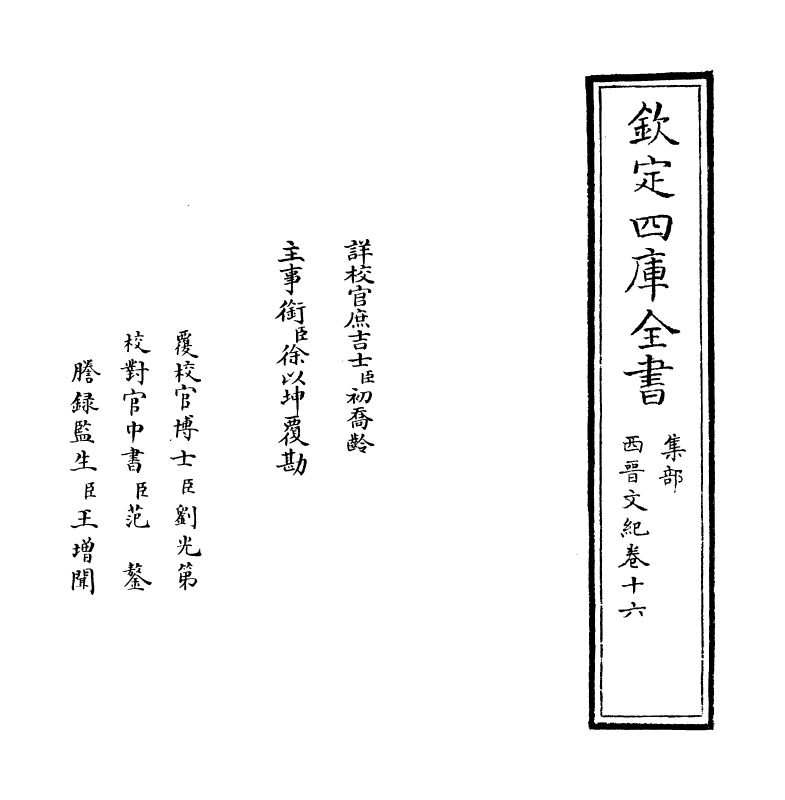 欽定四庫全書
集部
西晉文紀卷十六
詳校官庶吉士臣初喬齡
主事銜臣徐以坤覆勘
覆校官博士臣劉光第
校對官中書臣范鏊
謄録監生臣王增聞